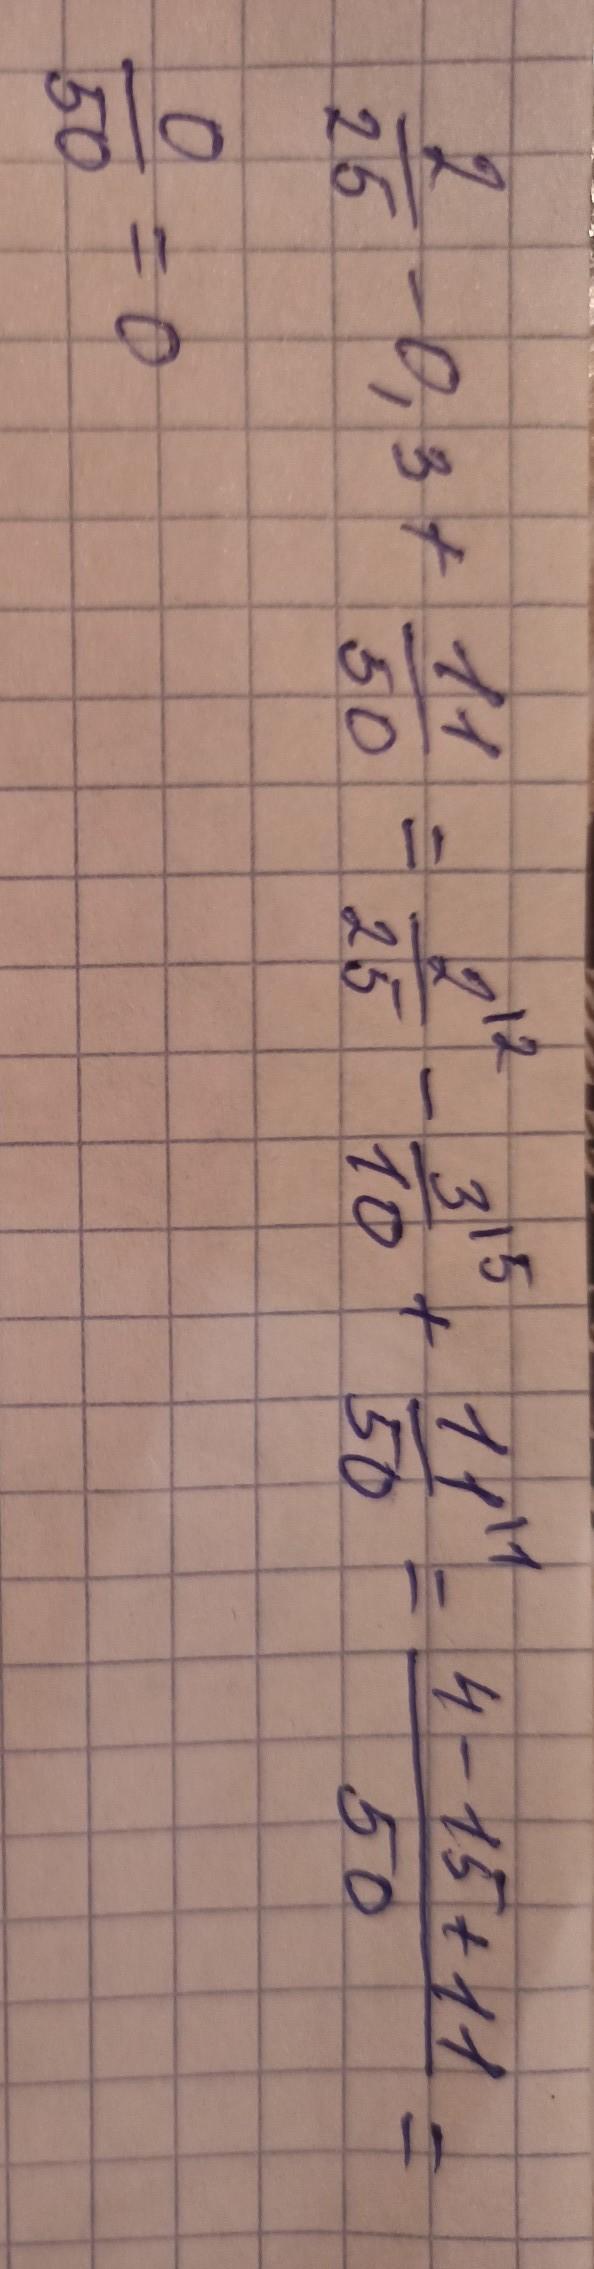 2/25 - 0,3 + 11/50 = 2\2/25 - 3\5/10 + 11\1/50 = 4-15+11/50 =
0/50 = 0